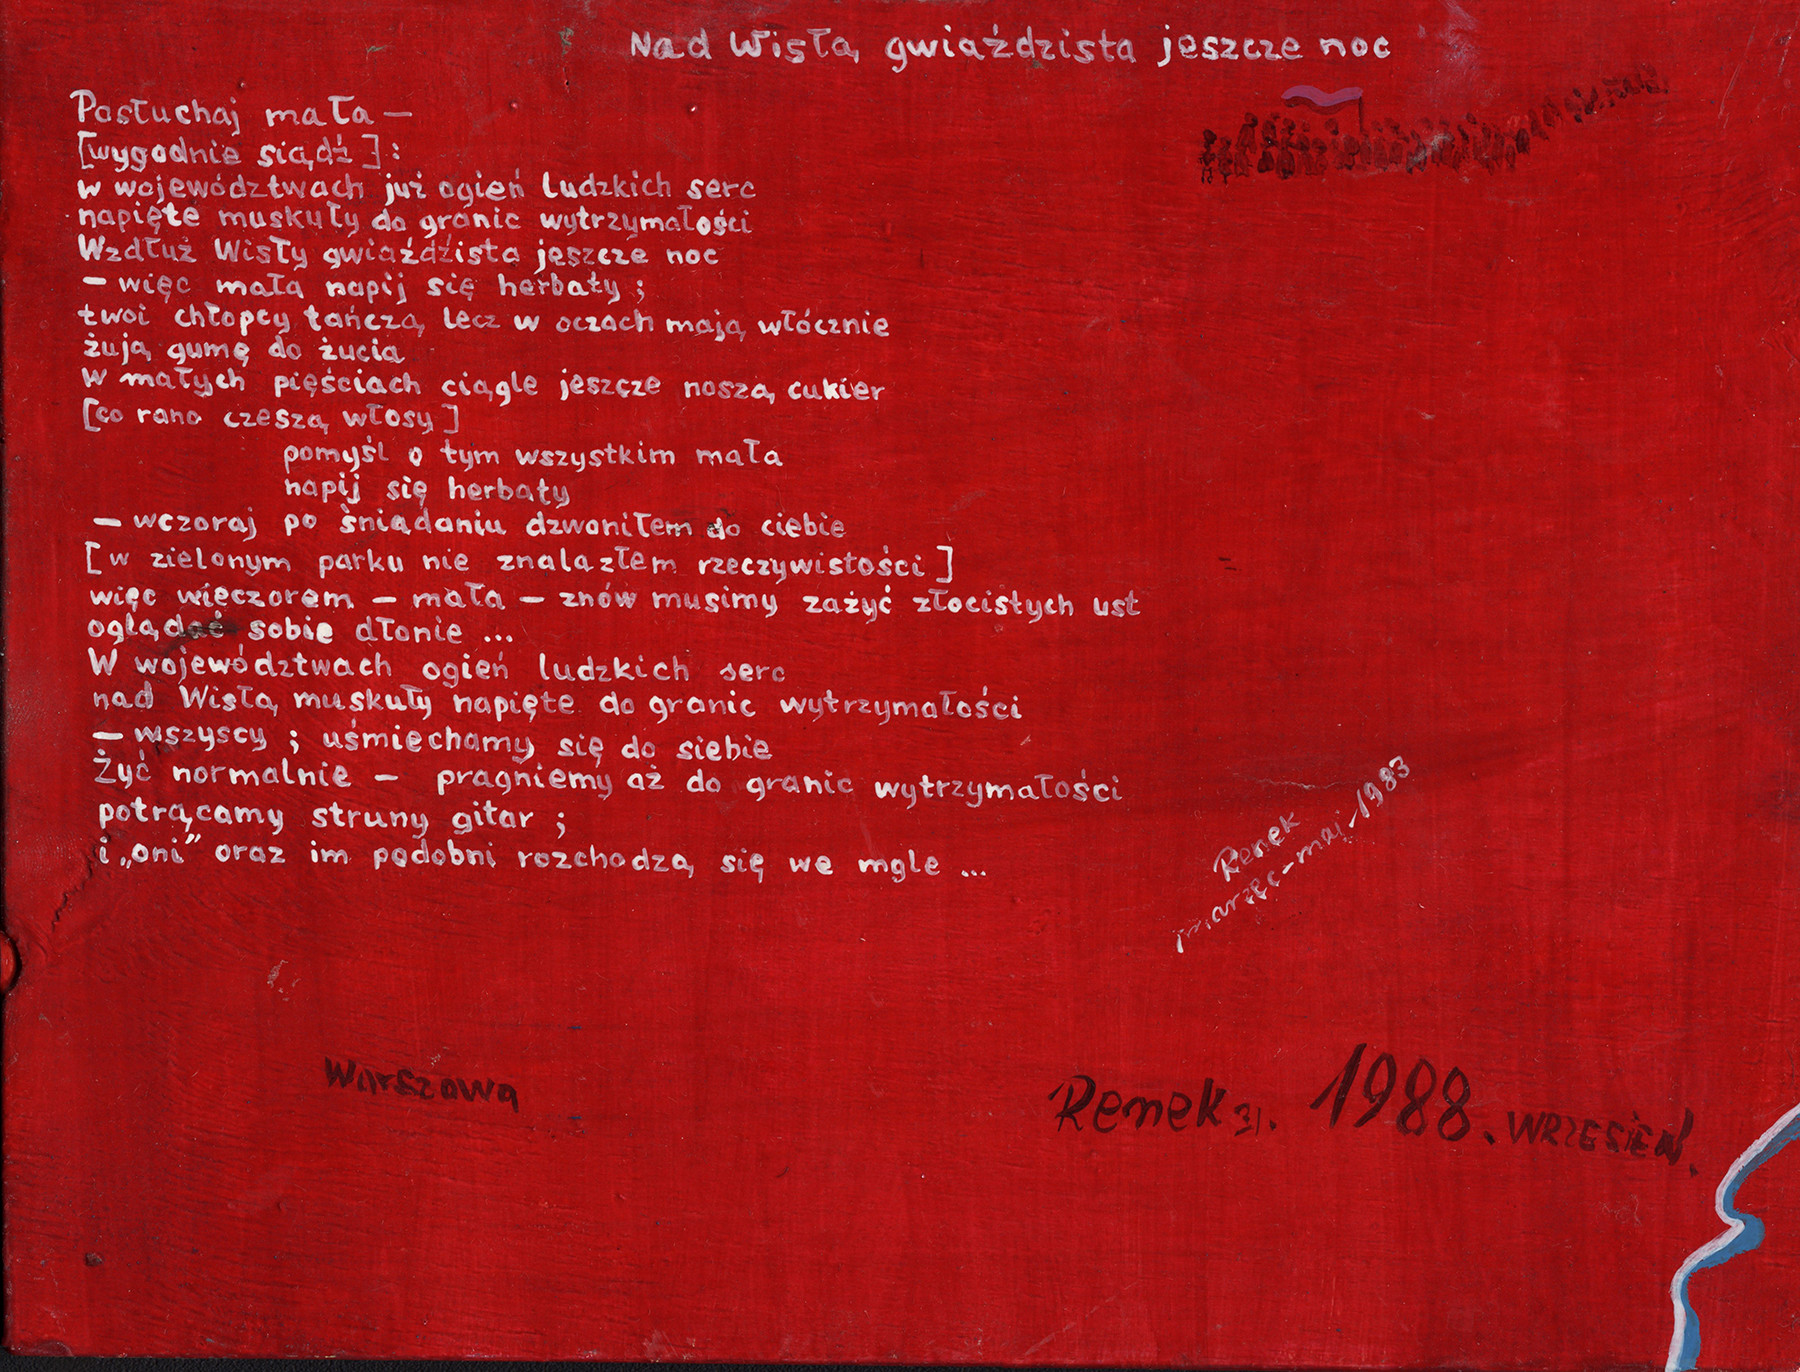 Nad Wisłą gwiaździsta jeszcze noc
Posłuchaj mała —
[wygodnie siądź]:
w województwach już ogień ludzkich serc
napięte muskuły do granic wytrzymałości
Wzdłuż Wisły gwiaździsta jeszcze noc
— więc mała napij się herbaty ;
twoi chłopcy tańczą, lecz w oczach mają włócznie
żują gumę do żucia
w małych pięściach ciągle jeszcze noszą cukier
[co rano czeszą włosy]
pomyśl o tym wszystkim mała
napij się herbaty
— wczoraj po śniadaniu dzwoniłem do ciebie
[w zielonym parku nie znalazłem rzeczywistości]
więc wieczorem — mała — znów musimy zażyć złocistych ust
oglądać sobie dłonie ...
W województwach ogień ludzkich serc
nad Wisłą muskuły napięte do granic wytrzymałości
— wszyscy ; uśmiechamy się do siebie
Żyć normalnie — pragniemy aż do granic wytrzymałości
potrącamy struny gitar ;
i „oni” oraz im podobni rozchodzą się we mgle ...
Renek
marzec-maj 1983
Warszawa
Renek 31. 1988. WRZESIEŃ.